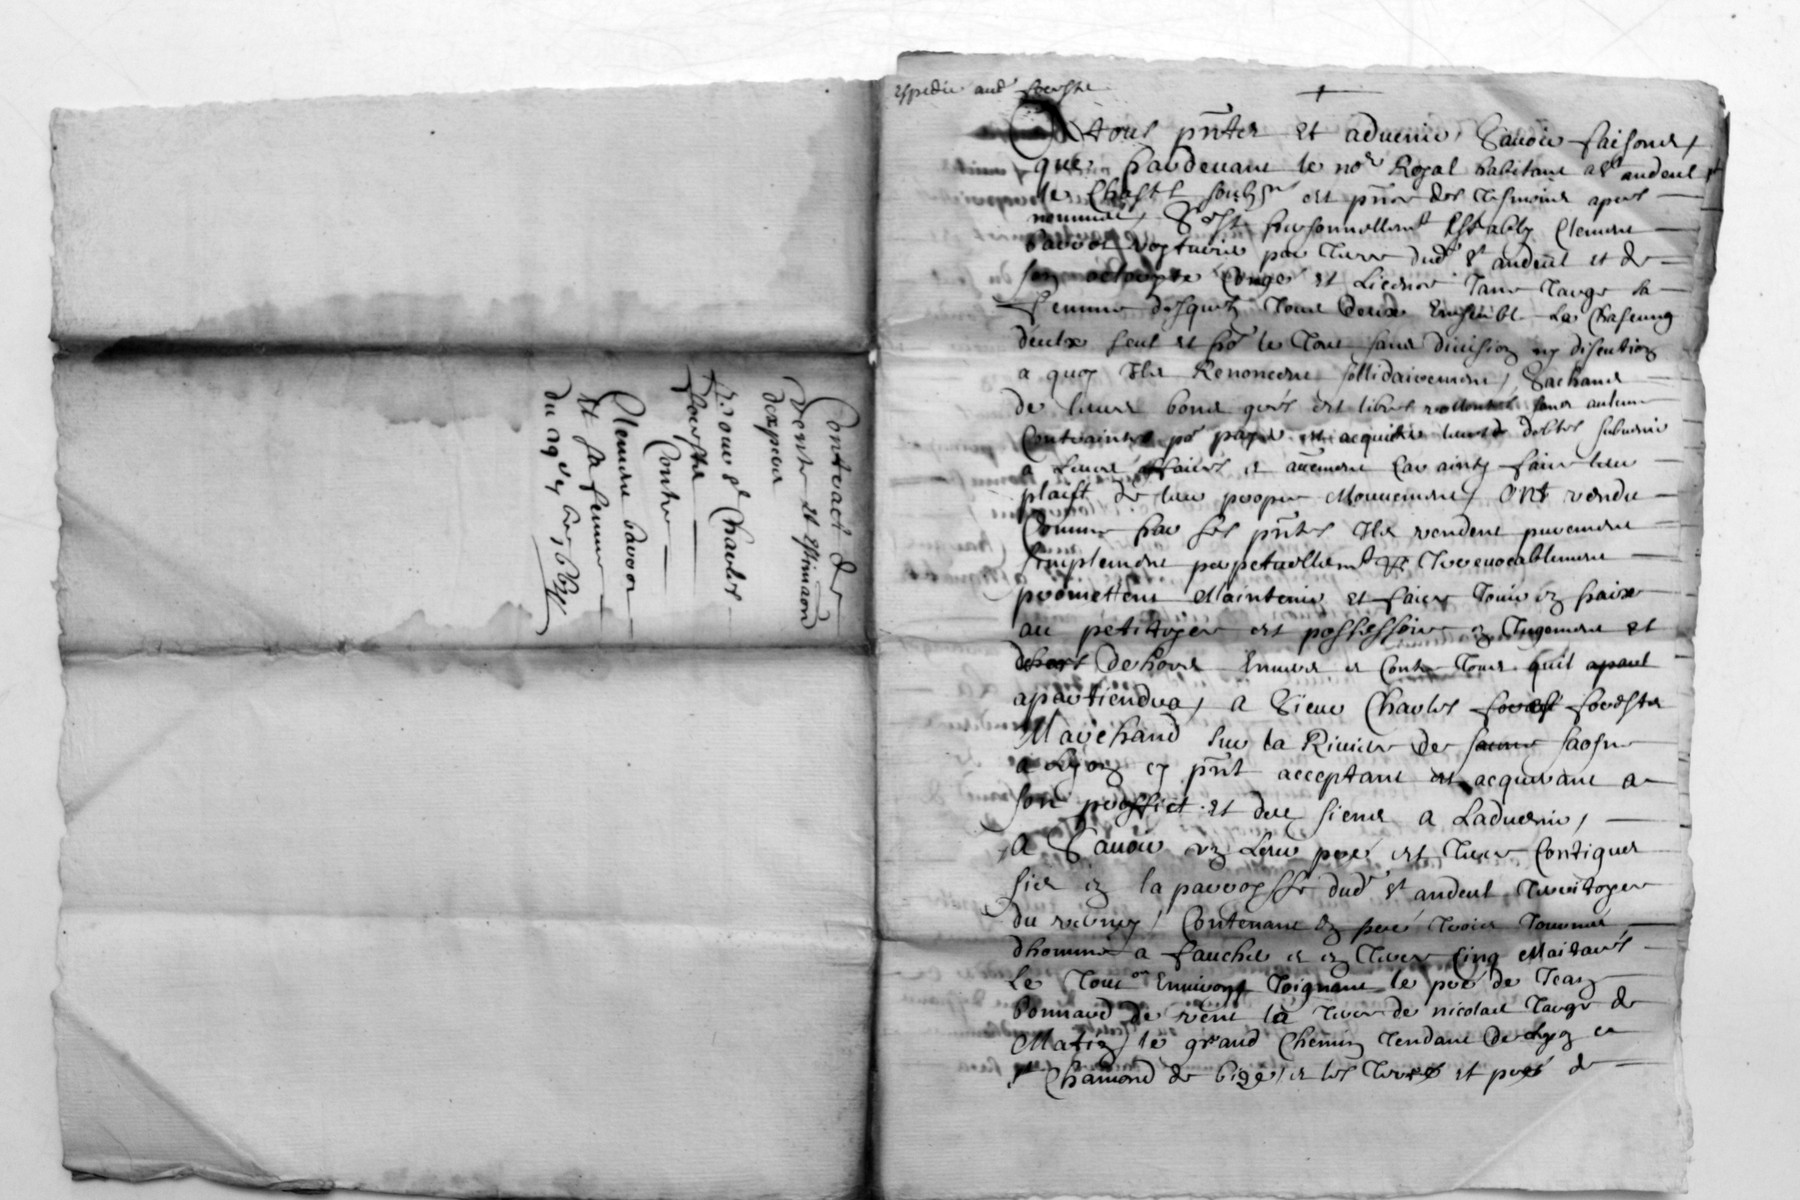 Contract de
vente et estimaon
dexpers
Pour sr Charles
forestz
Contre
Clement barror
Et sa femme
du 29e
expedie aud forestz
A tous pntz et advenir Scavoir faisons
que pardevant le nore Royal habitant a st andeol
le Chastel soubzne et pnts des tesmoins apres
nommes, S'est personnellemt Estably Clement
voyturier par terre dud st andeol et de
son Conge et Licence Jane
femme desquelz tous deux Ensemble La Chascung
deulx seul et pr le tout sans division ny discution
a quoy Ilz Renoncent sollidairement, Sachant
de leurs bons grés et libres vollontes sans aulcune
Contrainte pr payer et acquiter leurs debtes subvenir
a Leurs affaires et aultrement Car ainsy faire leur
plaist de leur propre Mouvement, Ont vendu
Comme par ses pntes Ilz vendent purement
simplement perpetuellemt et Irrevocablement
promettent Maintenir et faire Jouir en paix
au petitoyre et possessoire en Jugement et
dehors Envers et Contre tous quil
apartiendra, A Sieur Charles forestz
Marchand sur la Riviere de saosne
a Lyon cy pnt acceptant et acquerant a
son proffict et des siens a Ladvenir,
A Scavoir un Leur pré et terre Contigues
sis en la parroysse dud st andeol territoyre
du Contenant en pré trois
dhomme a faucher et en terre Cinq
Le tout Environ Joignant le pré de Jean
bonnard de vent la terre de nicolas de
Matin, le grand Chemin tendant de Lyon a
st Chamond de bize, et les terres et prés de